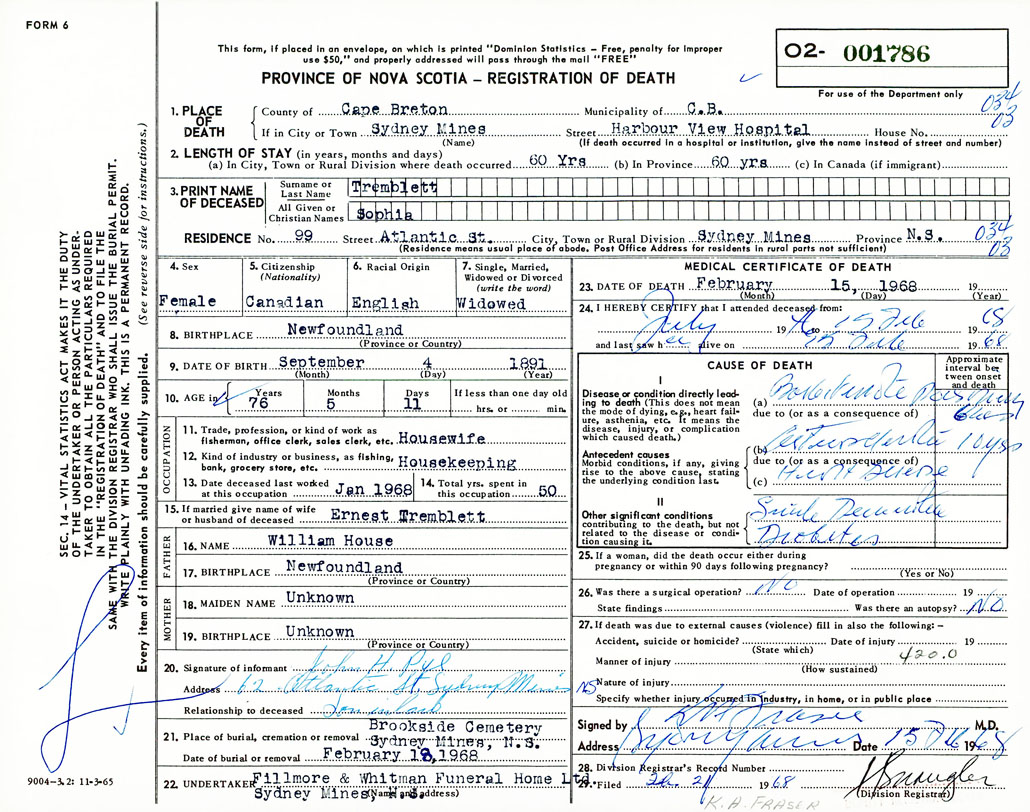 FORM 6
This form, if placed in an envelope, on which is printed "Dominion Statistics – Free, penalty for improper
use $50," and properly addressed will pass through the mail "FREE"
PROVINCE OF NOVA SCOTIA – REGISTRATION OF DEATH
O2- 001786
For use of the Department only
034
03
SEC. 14 – VITAL STATISTICS ACT MAKES IT THE DUTY
OF THE UNDERTAKER OR PERSON ACTING AS UNDER-
TAKER TO OBTAIN ALL THE PARTICULARS REQUIRED
IN THE "REGISTRATION OF DEATH" AND TO FILE THE
SAME WITH THE DIVISION REGISTRAR WHO SHALL ISSUE THE BURIAL PERMIT.
WRITE PLAINLY WITH UNFADING INK. THIS IS A PERMANENT RECORD.
Every item of information should be carefully supplied. (See reverse side for instructions.)
1. PLACE OF DEATH
County of Cape Breton Municipality of C.B.
If in City or Town Sydney Mines Street Harbour View Hospital House No.
(Name) (If death occurred in a hospital or institution, give the name instead of street and number)
2. LENGTH OF STAY (in years, months and days)
(a) In City, Town or Rural Division where death occurred 60 Yrs (b) In Province 60 yrs (c) In Canada (if immigrant)
3. PRINT NAME OF DECEASED
Surname or Last Name Tremblett
All Given or Christian Names Sophia
RESIDENCE No. 99 Street Atlantic St. City, Town or Rural Division Sydney Mines Province N.S.
034
03
(Residence means usual place of abode. Post Office Address for residents in rural parts not sufficient)
4. Sex
Female
5. Citizenship
(Nationality)
Canadian
6. Racial Origin
English
7. Single, Married,
Widowed or Divorced
(write the word)
Widowed
8. BIRTHPLACE Newfoundland
(Province or Country)
9. DATE OF BIRTH September 4 1891
(Month) (Day) (Year)
10. AGE in
Years Months Days If less than one day old
76 5 11 hrs. or min.
OCCUPATION
11. Trade, profession, or kind of work as
fisherman, office clerk, sales clerk, etc. Housewife
12. Kind of industry or business, as fishing,
bank, grocery store, etc. Housekeeping
13. Date deceased last worked
at this occupation Jan 1968
14. Total yrs. spent in
this occupation 50
15. If married give name of wife
or husband of deceased Ernest Tremblett
FATHER
16. NAME William House
17. BIRTHPLACE Newfoundland
(Province or Country)
MOTHER
18. MAIDEN NAME Unknown
19. BIRTHPLACE Unknown
(Province or Country)
20. Signature of informant John H. Pyl
Address 62 Atlantic St Sydney Mines NS
Relationship to deceased Son in law
21. Place of burial, cremation or removal Brookside Cemetery
Sydney Mines, N.S.
Date of burial or removal February 18, 1968
22. UNDERTAKER Fillmore & Whitman Funeral Home Ltd.
Sydney Mines, N.S.
(Name and address)
MEDICAL CERTIFICATE OF DEATH
23. DATE OF DEATH February 15, 1968 19
(Month) (Day) (Year)
24. I HEREBY CERTIFY that I attended deceased from:
July 19 to 15 Feb 19 68
and last saw h er alive on 15 Feb 19 68
CAUSE OF DEATH
Approximate
interval be-
tween onset
and death
I
Disease or condition directly lead-
ing to death (This does not mean
the mode of dying, e.g., heart fail-
ure, asthenia, etc. It means the
disease, injury, or complication
which caused death.)
(a)
due to (or as a consequence of)
Antecedent causes
Morbid conditions, if any, giving
rise to the above cause, stating
the underlying condition last.
(b) 10 yrs
due to (or as a consequence of)
(c) Heart Disease
II
Other significant conditions
contributing to the death, but not
related to the disease or condi-
tion causing it.
Senile
Diabetes
25. If a woman, did the death occur either during
pregnancy or within 90 days following pregnancy?
(Yes or No)
26. Was there a surgical operation? NO Date of operation 19
State findings Was there an autopsy? NO
27. If death was due to external causes (violence) fill in also the following: –
Accident, suicide or homicide? Date of injury 19
(State which)
420.0
Manner of injury
(How sustained)
Nature of injury
Specify whether injury occurred in industry, in home, or in public place
Signed by M.D.
Address Sydney Mines Date 15 Feb 1968
28. Division Registrar's Record Number
29. Filed Feb. 21 1968
(Division Registrar)
K. A. FRASER
9004-3.2: 11-3-65